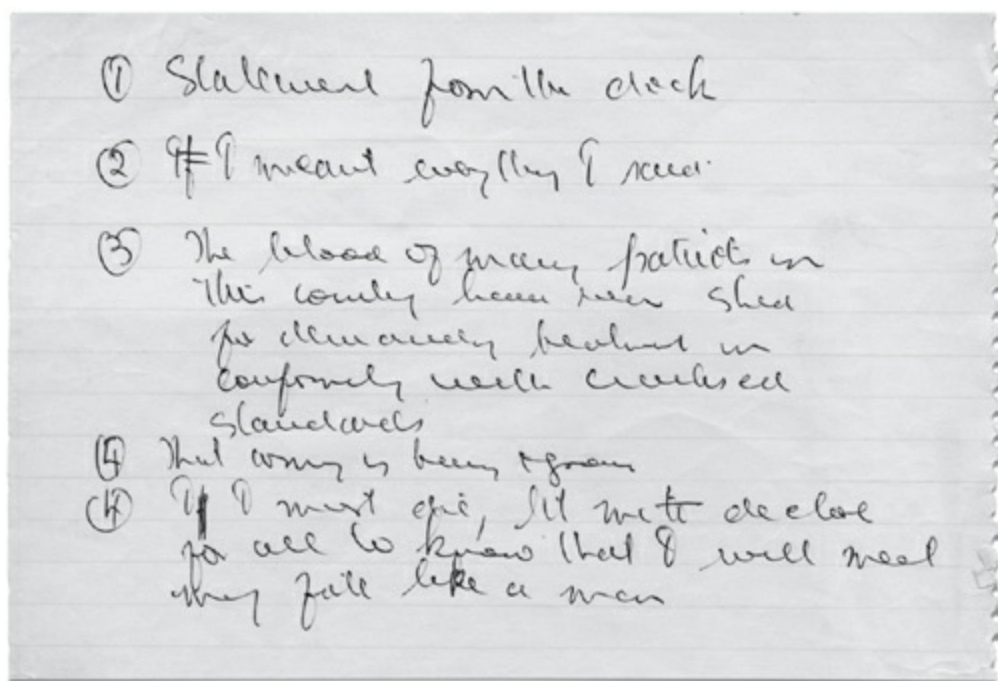 ① Statement from the dock
② If I meant everything I said.
③ The blood of many patriots in
this country have been shed
for demanding treatment in
conformity with civilised
standards
④ That army is being grown
④ If I must die, let me declare
for all to know that I will meet
my fate like a man